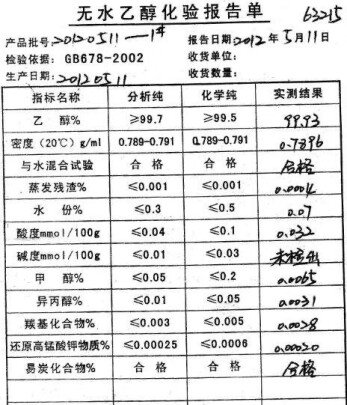 无水乙醇化验报告单 63215
产品批号:20120511—1# 报告日期:2012年5月11日
检验依据: GB678-2002 收货单位:
生产日期:20120511 收货数量:
指标名称 分析纯 化学纯 实测结果
乙 醇% ≥99.7 ≥99.5 99.93
密度（20℃）g/ml 0.789-0.791 0.789-0.791 0.7896
与水混合试验 合 格 合 格 合格
蒸发残渣% ≤0.001 ≤0.001 0.0004
水 份% ≤0.3 ≤0.5 0.07
酸度mmol/100g ≤0.04 ≤0.1 0.032
碱度mmol/100g ≤0.01 ≤0.03 未检出
甲 醇% ≤0.05 ≤0.2 0.0065
异丙醇% ≤0.01 ≤0.05 0.0031
羰基化合物% ≤0.003 ≤0.005 0.0028
还原高锰酸钾物质% ≤0.00025 ≤0.0006 0.00020
易炭化合物% 合 格 合 格 合格